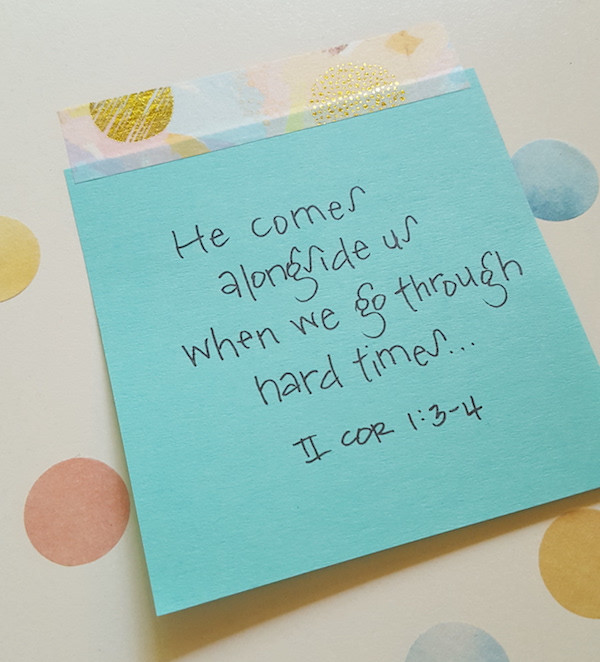 He comes
alongside us
when we go through
hard times...
II COR 1:3-4